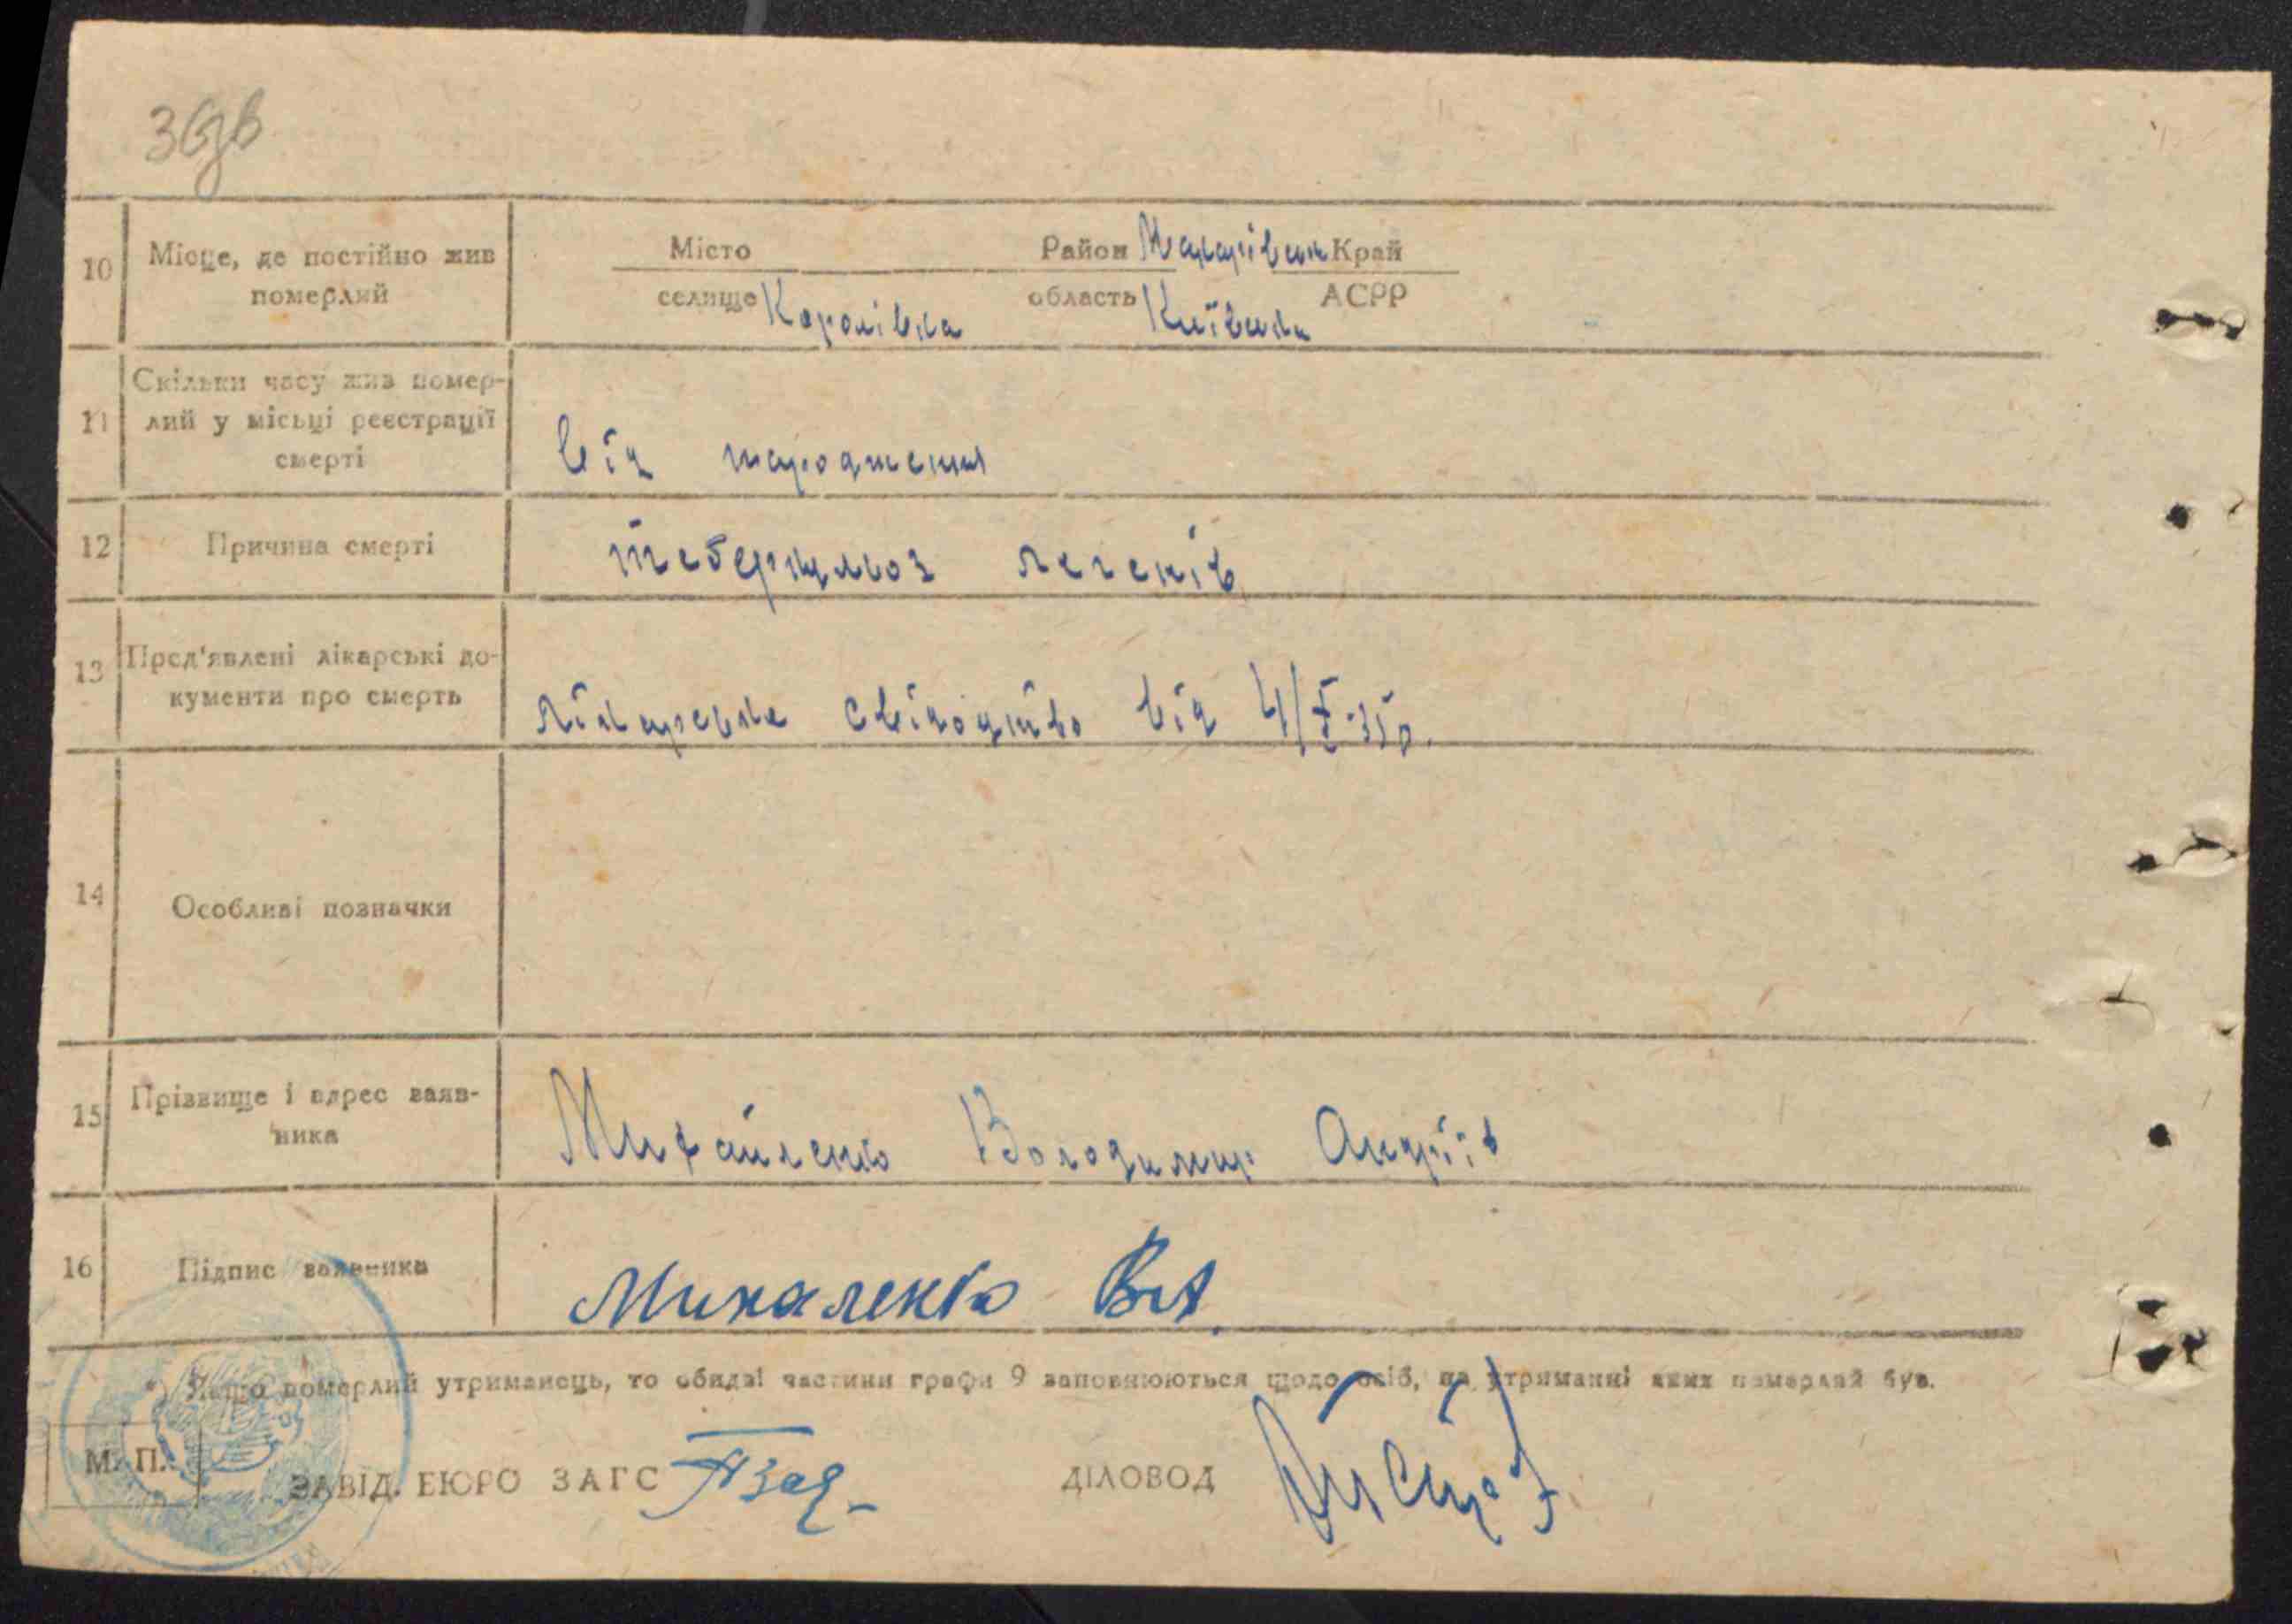 36зв
10 Місце, де постійно жив померлий
Місто Район Макарівськ Край
селище Королівка область Київська АСРР
11 Скільки часу жив помер-
лий у місьці реєстрації
смерті
від народження
12 Причина смерті туберкульоз легенів
13 Пред'явлені лікарські до-
кументи про смерть
лікарське свідоцтво від 4/X-35р.
14 Особливі позначки
15 Прізвище і адрес заяв-
ника
Михайленко Володимир Андріїв
16 Підпис заявника Михаленко В.А.
*) Якщо померлий утриманець, то обидві частини графи 9 заповнюються щодо осіб, на утриманні яких померлий був.
М. П. ЗАВІД. БЮРО ЗАГС ДІЛОВОД